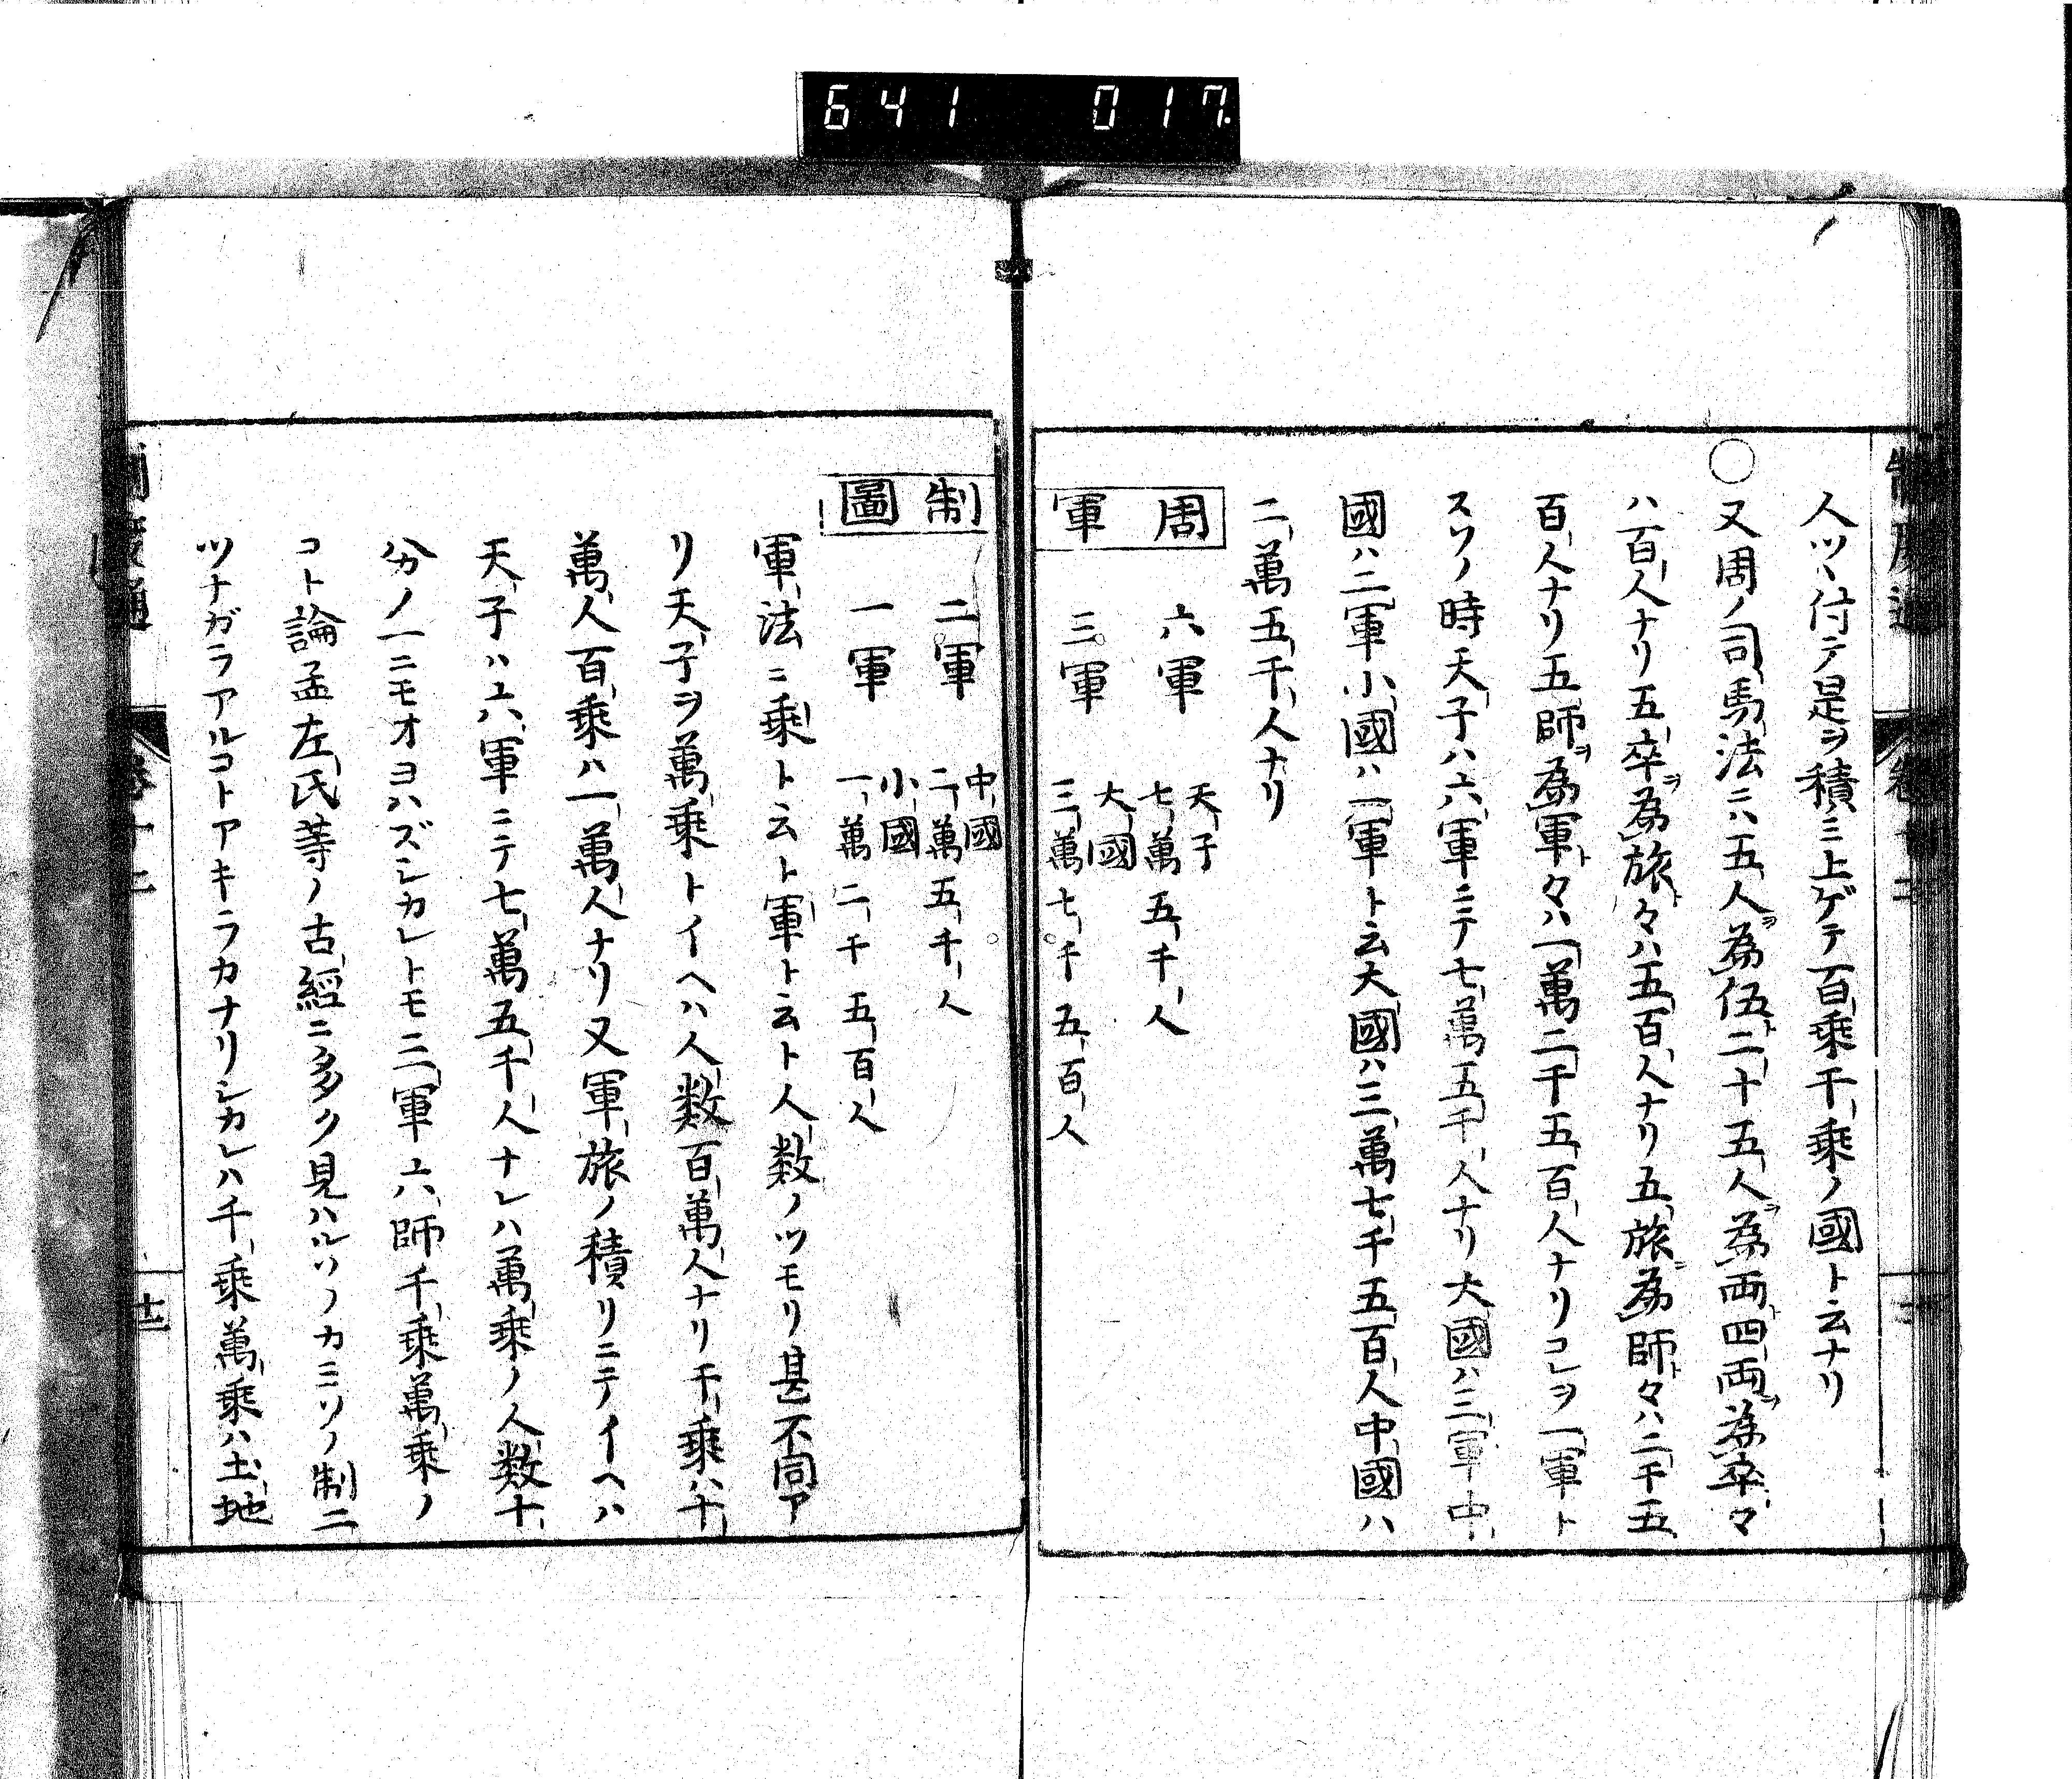 641 017
制度通 卷十二
人ツヽ付テ是ヲ積ミ上ゲテ百乘千乘ノ國ト云ナリ
〇又周ノ司馬法ニハ五人ヲ為伍ト二十五人ヲ為両ト四両ヲ為卒ト々
ハ百人ナリ五卒ヲ為旅ト々ハ五百人ナリ五旅ヲ為師ト々ハ二千五
百人ナリ五師ヲ為軍ト々ハ一萬二千五百人ナリコレヲ一軍ト
スソノ時天子ハ六軍ニテ七萬五千人ナリ大國ハ三軍中
國ハ二軍小國ハ一軍ト云大國ハ三萬七千五百人中國ハ
二萬五千人ナリ
周 六軍 天子 七萬五千人
軍 三軍 大國 三萬七千五百人
制 二軍 中國 二萬五千人
圖 一軍 小國 一萬二千五百人
軍法ニ乘ト云ト軍ト云ト人数ノツモリ甚不同ア
リ天子ヲ萬乘トイヘハ人数百萬人ナリ千乘ハ十
萬人百乘ハ一萬人ナリ又軍旅ノ積リニテイヘハ
天子ハ六軍ニテ七萬五千人ナレハ萬乘ノ人数十
分ノ一ニモオヨハズシカレトモ三軍六師千乘萬乘ノ
コト論孟左氏等ノ古經ニ多ク見ハルソノカミソノ制二
ツナガラアルコトアキラカナリシカレハ千乘萬乘ハ土地
制度通 卷十二 十二